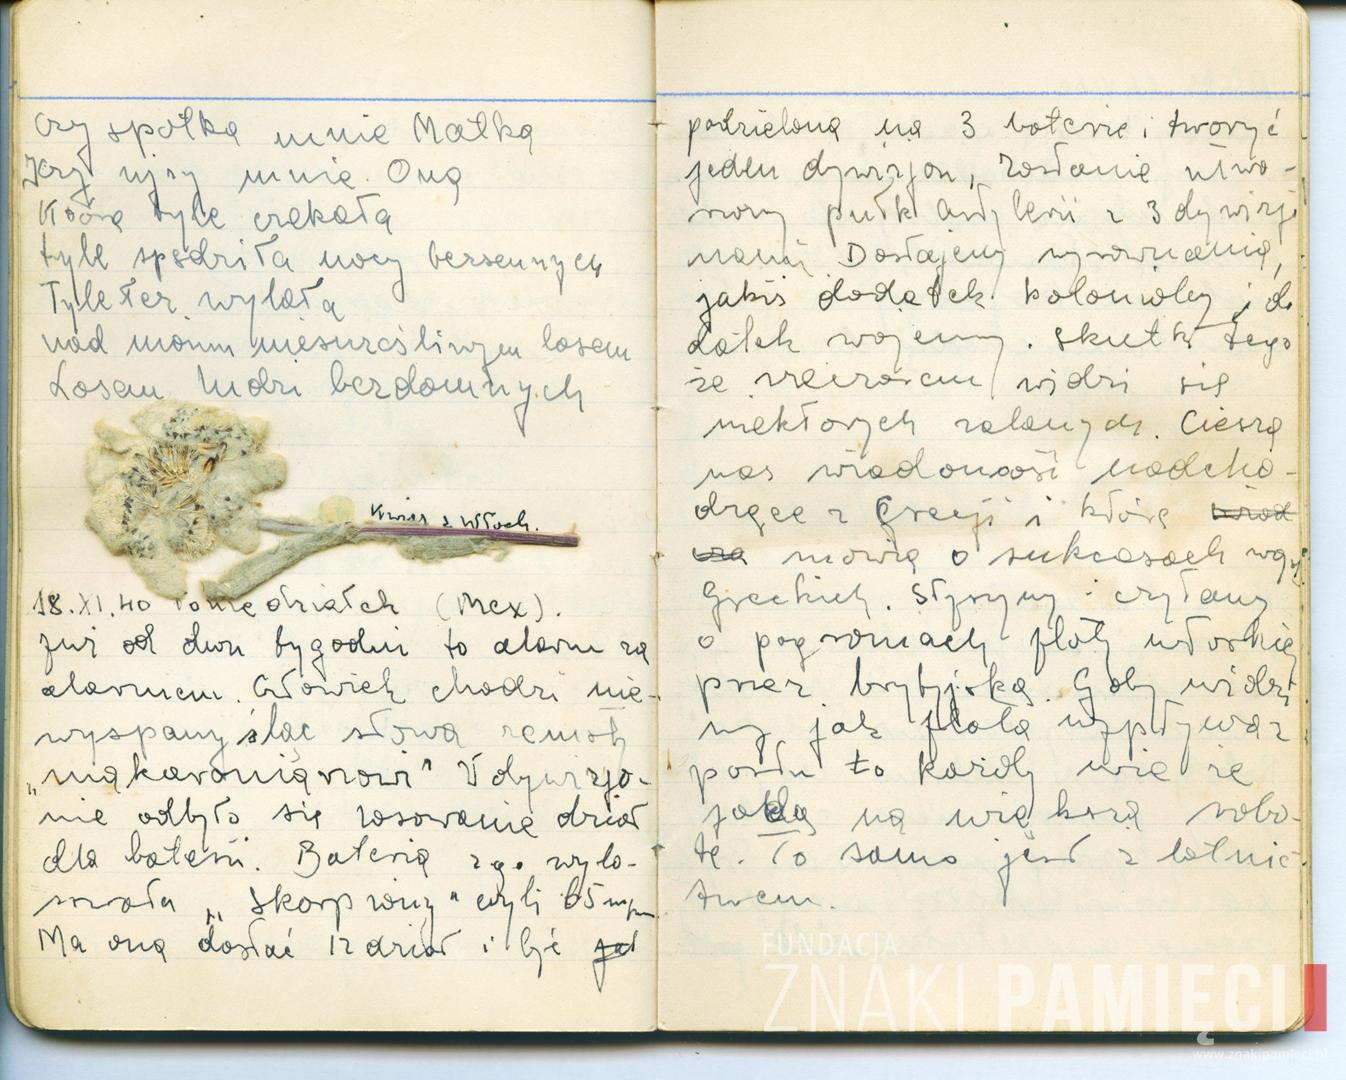 Czy spotka mnie Matka
Czy ujży mnie Ona
Która tyle czekała
tyle spędziła nocy bezsennych
Tyle łez wylała
nad moim nieszczęśliwym losem
Losem ludzi bezdomnych
Kwiat z Włoch.
18.XI.40 Poniedziałek (Mex).
Już od dwu tygodni to alarm za
alarmem. Człowiek chodzi nie-
wyspany śląc słowa zemsty
„makaroniarzowi" W dywizjo-
nie odbyło się losowanie dział
dla baterii. Bateria 2ga wylo-
sowała „Skorpiony" czyli 65 mm
Ma ona dostać 12 dział i być
podzielona na 3 baterie i tworzyć
jeden dywizjon, zostanie utwo-
rzony pułk Artylerii z 3 dywizjo
nami. Dostajemy wyrównania,
jakiś dodatek kolonialny i do
datek wojenny. Skutki tego
że wieczorem widzi się
niektórych zalanych. Cieszą
nas wiadomości nadcho-
dzące z Grecji i które
mówią o sukcesach wojsk
Greckich. Słyszymy i czytamy
o pogromach floty włoskiej
przez brytyjską. Gdy widzi
my jak flota wypływa z
portu to każdy wie że
jadą na większą robo-
tę. To samo jest z lotnic-
twem.
FUNDACJA
ZNAKI PAMIĘCI
www.znakipamieci.pl